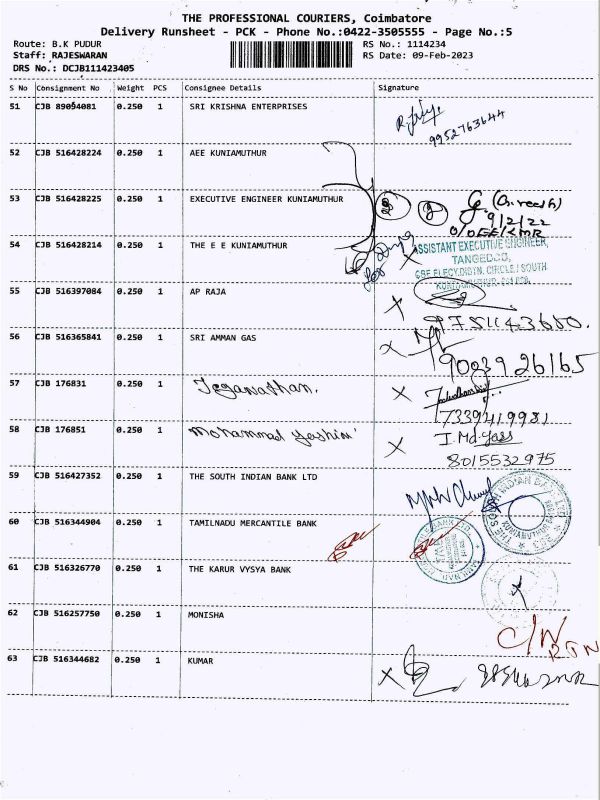 THE PROFESSIONAL COURIERS, Coimbatore
Delivery Runsheet - PCK - Phone No.:0422-3505555 - Page No.:5
Route: B.K PUDUR
RS No.: 1114234
Staff: RAJESWARAN
RS Date: 09-Feb-2023
DRS No.: DCJB111423405
S No Consignment No Weight PCS Consignee Details Signature
51 CJB 89094081 0.250 1 SRI KRISHNA ENTERPRISES
9952763644
52 CJB 516428224 0.250 1 AEE KUNIAMUTHUR
53 CJB 516428225 0.250 1 EXECUTIVE ENGINEER KUNIAMUTHUR
9/2/22
O/O EE/KMR
54 CJB 516428214 0.250 1 THE E E KUNIAMUTHUR
ASSISTANT EXECUTIVE ENGINEER,
TANGEDCO,
CBE ELECY.DIDTN. CIRCLE / SOUTH
55 CJB 516397084 0.250 1 AP RAJA
56 CJB 516365841 0.250 1 SRI AMMAN GAS
9003926165
57 CJB 176831 0.250 1 Jeganathan.
7339419981
58 CJB 176851 0.250 1 Mohammad Yashin
I. Md. Yass
8015532975
59 CJB 516427352 0.250 1 THE SOUTH INDIAN BANK LTD
60 CJB 516344904 0.250 1 TAMILNADU MERCANTILE BANK
61 CJB 516326770 0.250 1 THE KARUR VYSYA BANK
62 CJB 516257750 0.250 1 MONISHA
C/N
RTN
63 CJB 516344682 0.250 1 KUMAR